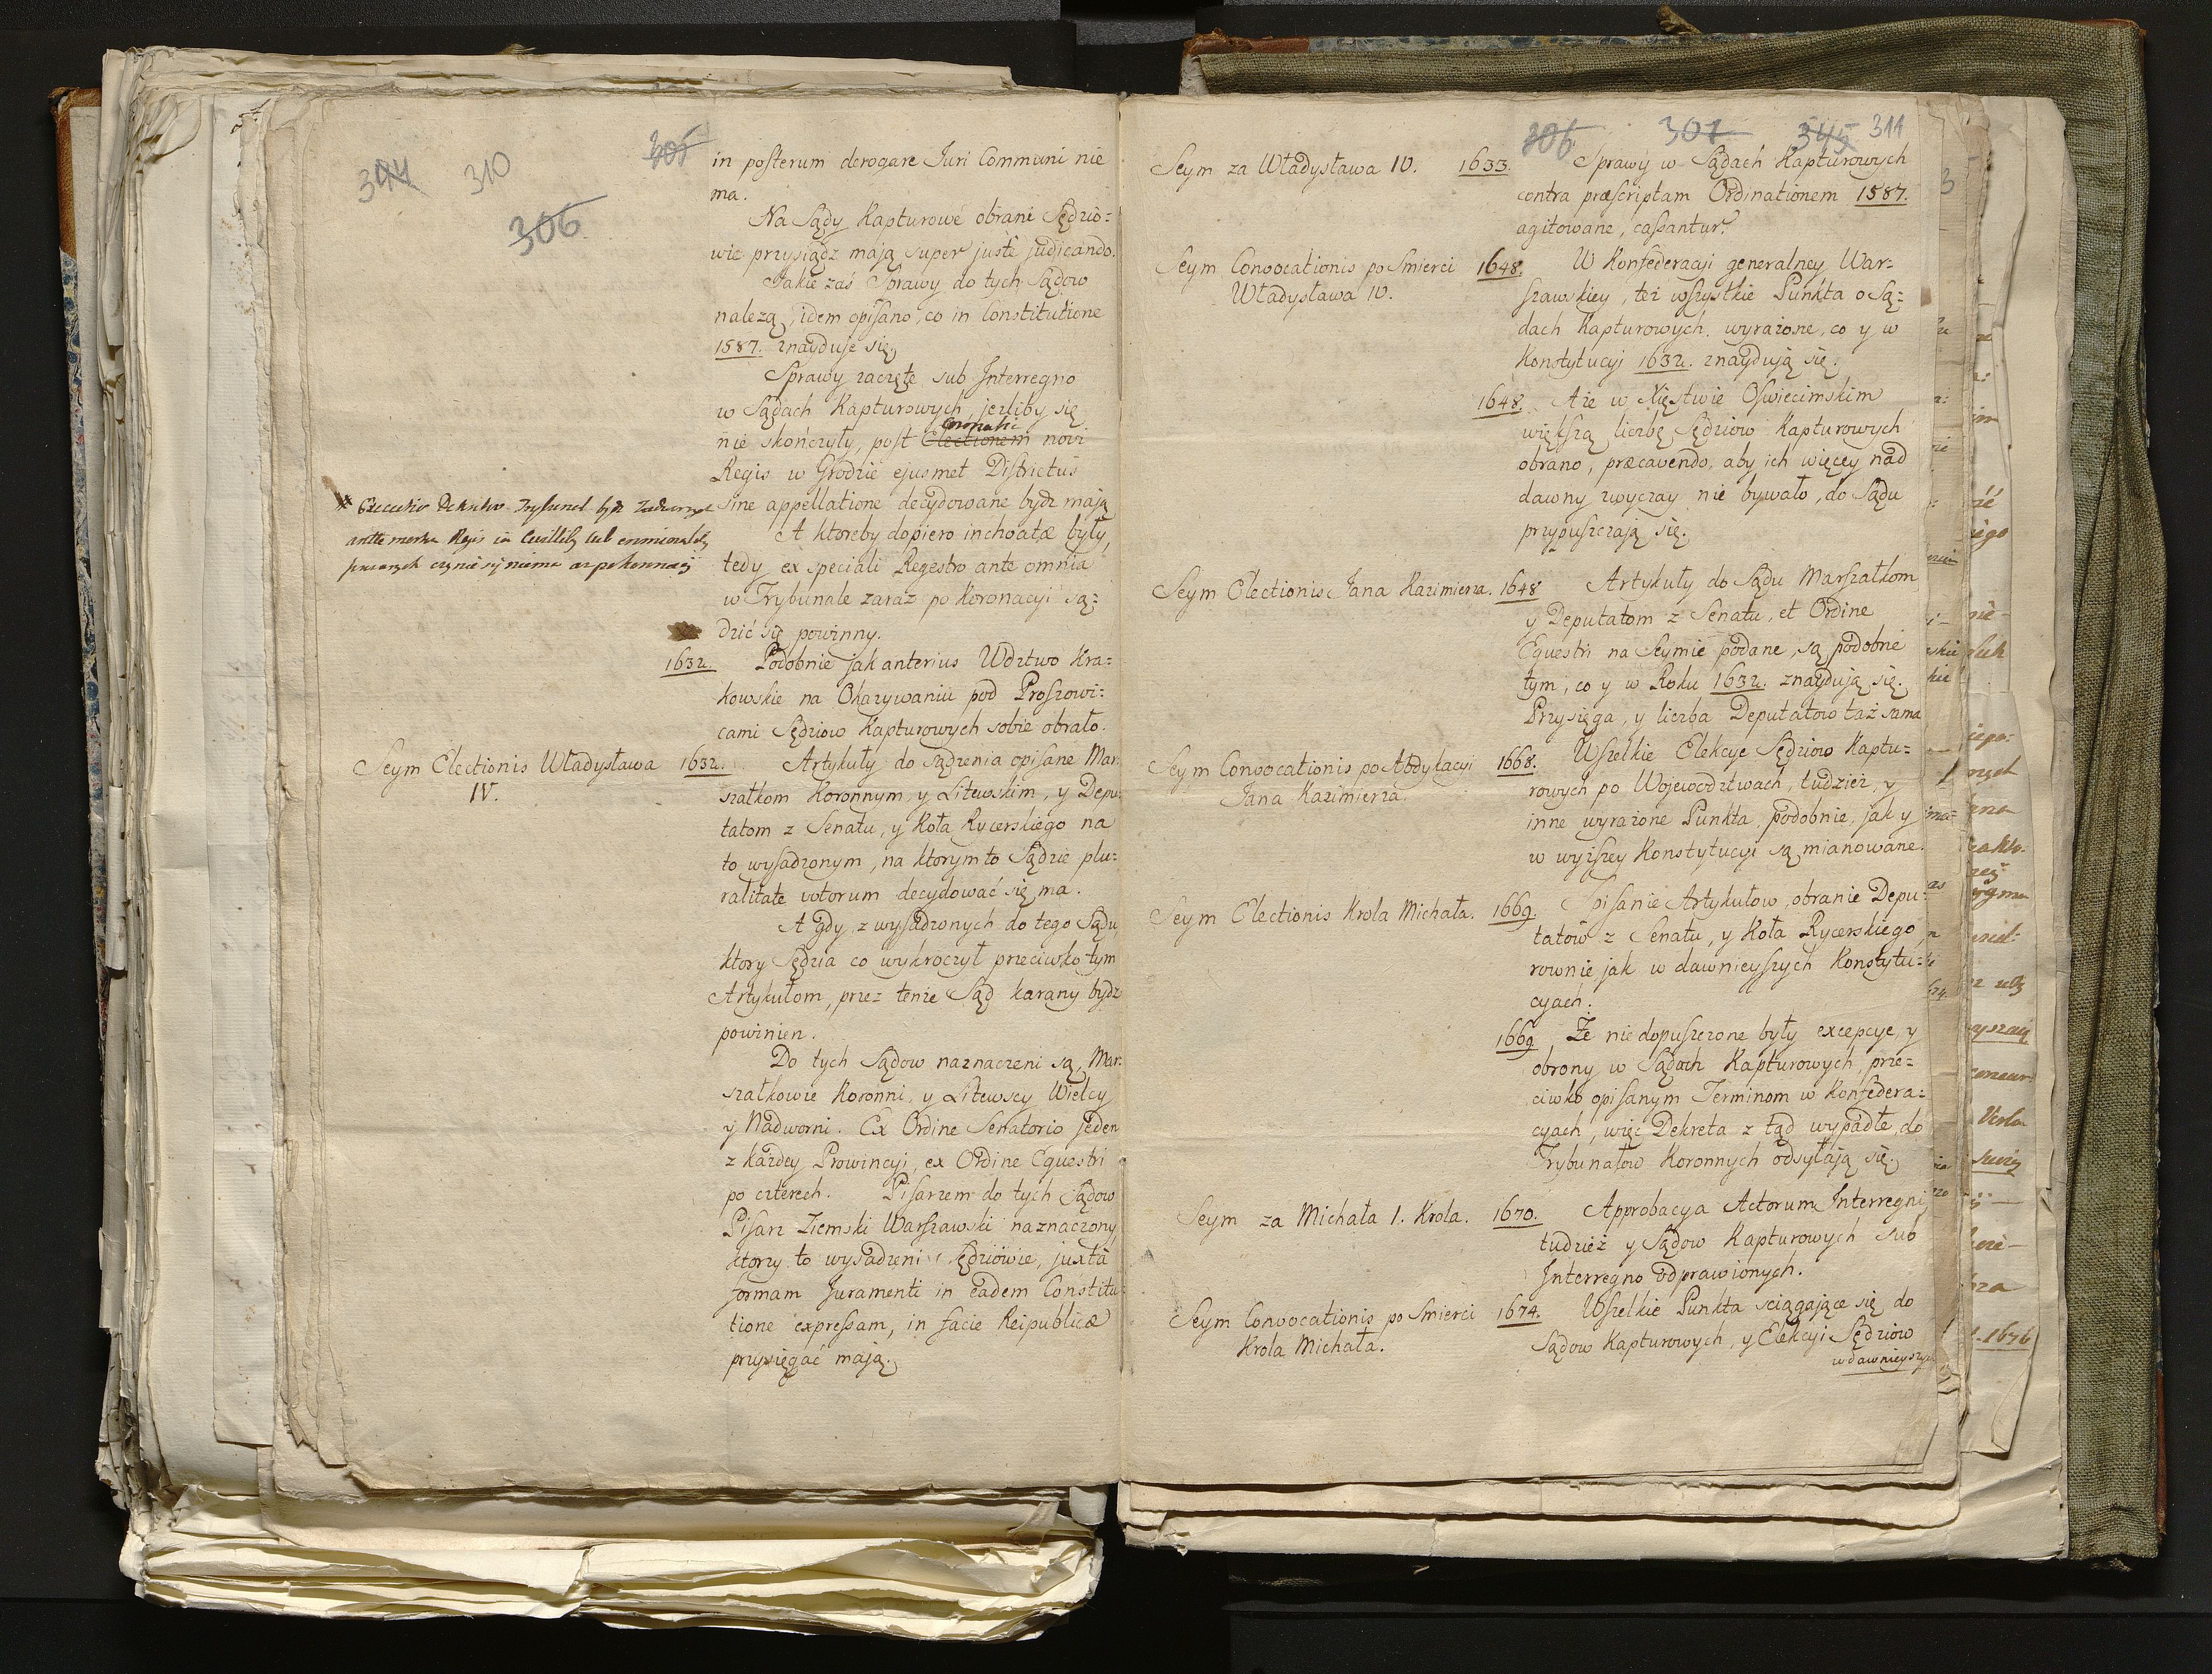 344 310 305
306
in posterum derogare Juri Communi nie
ma.
Na Sądy Kapturowe obrani Sędzio=
wie przysiądz mają super juste judicando.
Jakie zaś Sprawy do tych Sądow
nalezą, idem opisano, co in Constitutione
1587. znayduje się.
Sprawy zaczęte sub Interregno
w Sądach Kapturowych, jezliby się
nie skończyły, post Electionem novi
Regis w Grodzie ejusmet Districtus
sine appellatione decydowane bydz mają
A ktoreby dopiero inchoatæ były,
tedy ex speciali Regestro ante omnia
w Trybunale zaraz po Koronacyi są=
dzić się powinny.
1632. Podobnie jak anterius Wdztwo Kra=
kowskie na Okazywaniu pod Proszowi=
cami Sędziow Kapturowych sobie obrało.
Seym Electionis Władysława IV.
1632. Artykuły do sądzenia opisane Mar
szałkom Koronnym, y Litewskim, y Depu
tatom z Senatu, y Koła Rycerskiego na
to wysadzonym, na ktorym to Sądzie plu=
ralitate votorum decydować się ma.
A gdy z wysadzonych do tego Sądu,
ktory Sędzia co wykroczył przeciwko tym
Artykułom, przez tenże Sąd karany bydz
powinien.
Do tych Sądow naznaczeni są, Mar=
szałkowie Koronni, y Litewscy Wielcy
y Nadworni. Ex Ordine Senatorio jeden
z każdey Prowincyi, ex Ordine Equestri
po czterech. Pisarzem do tych Sądow
Pisarz Ziemski Warszawski naznaczony,
ktorzy to wysadzeni Sędziowie, juxta
formam Juramenti in eadem Constitu=
tione expressam, in facie Reipublicæ
przysięgać mają.
306 307 345 311
Seym za Władysława IV. 1633. Sprawy w Sądach Kapturowych
contra præscriptam Ordinationem 1587.
agitowane, cassantur.
Seym Convocationis po Smierci
Władysława IV.
1648. W Konfederacyi generalney War=
szawskiey, też wszystkie Punkta o Są=
dach Kapturowych wyrażone, co y w
Konstytucyi 1632. znaydują się.
1648. Aże w Xięstwie Oswiecimskim
większą liczbę Sędziow Kapturowych
obrano, præcavendo, aby ich więcey nad
dawny zwyczay nie bywało, do Sądu
przypuszczają się.
Seym Electionis Jana Kazimierza. 1648 Artykuły do Sądu Marszałkom
y Deputatom z Senatu, et Ordine
Equestri na Seymie podane, są podobne
tym, co y w Roku 1632. znaydują się.
Przysięga, y liczba Deputatow taż sama
Seym Convocationis po Abdykacyi
Jana Kazimierza.
1668. Wszelkie Elekcye Sędziow Kaptu=
rowych po Wojewodztwach, tudzież, y
inne wyrażone Punkta, podobnie, jak y
w wyższey Konstytucyi są mianowane.
Seym Electionis Krola Michała. 1669. Spisanie Artykułow, obranie Depu=
tatow z Senatu, y Koła Rycerskiego,
rownie jak w dawnieyszych Konstytu=
cyach.
1669 Że niedopuszczone były excepcye, y
obrony w Sądach Kapturowych, prze=
ciwko opisanym Terminom w Konfedera=
cyach, więc Dekreta z tąd wypadłe, do
Trybunałow Koronnych odsyłają się.
Seym za Michała I. Krola. 1670. Approbacya Actorum Interregni,
tudzież y Sądow Kapturowych sub
Interregno odprawionych.
Seym Convocationis po Smierci
Krola Michała.
1674. Wszelkie Punkta sciągające się do
Sądow Kapturowych, y Elekcyi Sędziow
w dawnieyszych